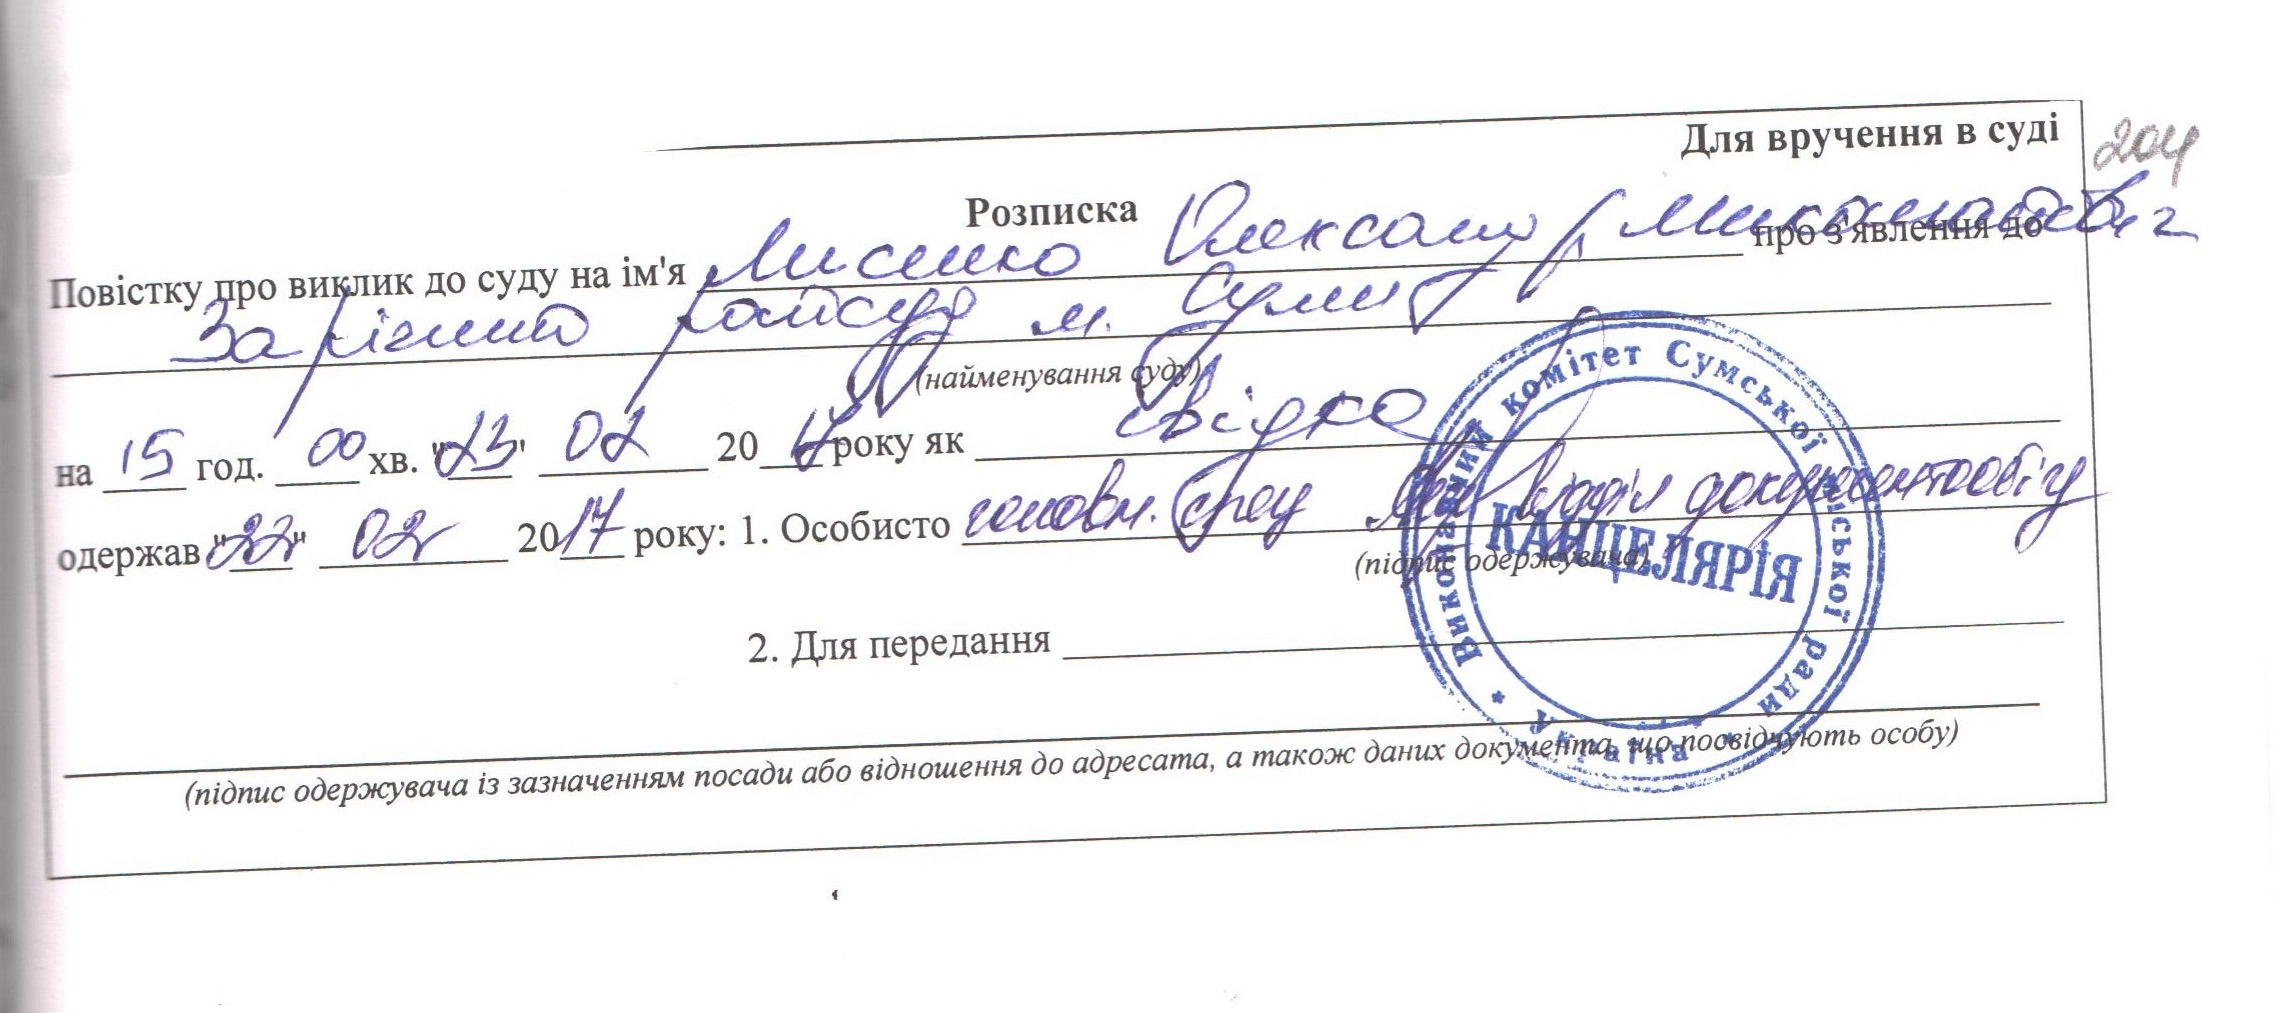 Для вручення в суді
204
Розписка
Повістку про виклик до суду на ім'я Лисенко Олександр Миколайович про з'явлення до
Зарічний райсуд м. Суми
(найменування суду)
на 15 год. 00 хв. "23" 02 2017 року як свідка
одержав "22" 02 2017 року: 1. Особисто головн. спец відділ документообігу
(підпис одержувача)
2. Для передання
(підпис одержувача із зазначенням посади або відношення до адресата, а також даних документа, що посвідчують особу)
Виконавчий комітет Сумської міської ради
КАНЦЕЛЯРІЯ
* Україна *